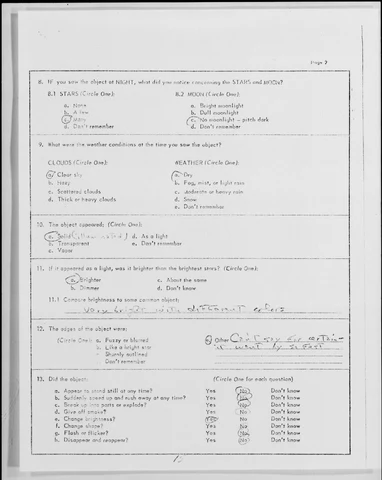 Page 2
8. IF you saw the object at NIGHT, what did you notice concerning the STARS and MOON?
8.1 STARS (Circle One): 8.2 MOON (Circle One):
a. None a. Bright moonlight
b. A few b. Dull moonlight
c. Many c. No moonlight – pitch dark
d. Don't remember d. Don't remember
9. What were the weather conditions at the time you saw the object?
CLOUDS (Circle One): WEATHER (Circle One):
a. Clear sky a. Dry
b. Hazy b. Fog, mist, or light rain
c. Scattered clouds c. Moderate or heavy rain
d. Thick or heavy clouds d. Snow
e. Don't remember
10. The object appeared: (Circle One):
a. Solid d. As a light
b. Transparent e. Don't remember
c. Vapor
11. If it appeared as a light, was it brighter than the brightest stars? (Circle One):
a. Brighter c. About the same
b. Dimmer d. Don't know
11.1 Compare brightness to some common object:
very bright with different colors
12. The edges of the object were:
(Circle One): a. Fuzzy or blurred e. Other Can't say for
b. Like a bright star it went by so fast
c. Sharply outlined
d. Don't remember
13. Did the object: (Circle One for each question)
a. Appear to stand still at any time? Yes No Don't know
b. Suddenly speed up and rush away at any time? Yes No Don't know
c. Break up into parts or explode? Yes No Don't know
d. Give off smoke? Yes No Don't know
e. Change brightness? Yes No Don't know
f. Change shape? Yes No Don't know
g. Flash or flicker? Yes No Don't know
h. Disappear and reappear? Yes No Don't know